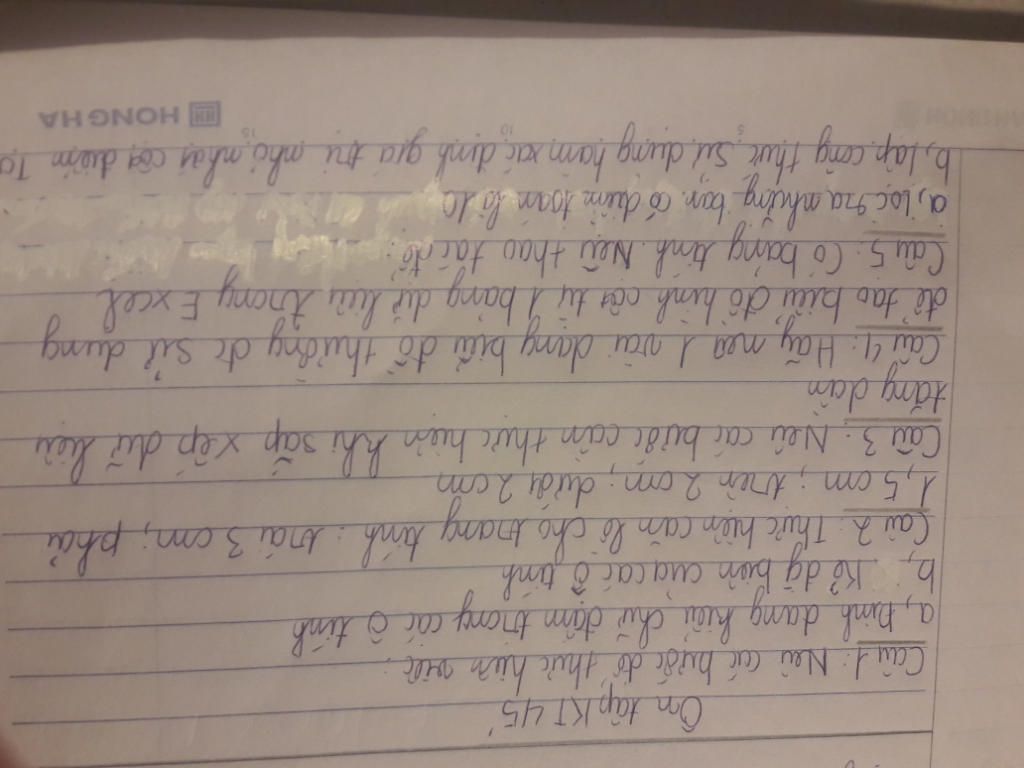 Ôn tập KT 45'
Câu 1: Nêu các bước để thực hiện việc:
a, Định dạng kiểu chữ đậm trong các ô tính
b, Kẻ đg biên của các ô tính
Câu 2: Thực hiện căn lề cho trang tính: trái 3 cm; phải
1,5 cm; trên 2 cm; dưới 2 cm
Câu 3: Nêu các bước cần thực hiện khi sắp xếp dữ liệu
tăng dần
Câu 4: Hãy nêu 1 vài dạng biểu đồ thường đc sử dụng
để tạo biểu đồ hình cột từ 1 bảng dữ liệu trong Excel
Câu 5: Có bảng tính. Nêu thao tác để:
a, lọc ra những bạn có điểm toán là 10
b, lập công thức sử dụng hàm xác định giá trị nhỏ nhất cột điểm
5 10 15
HONG HA